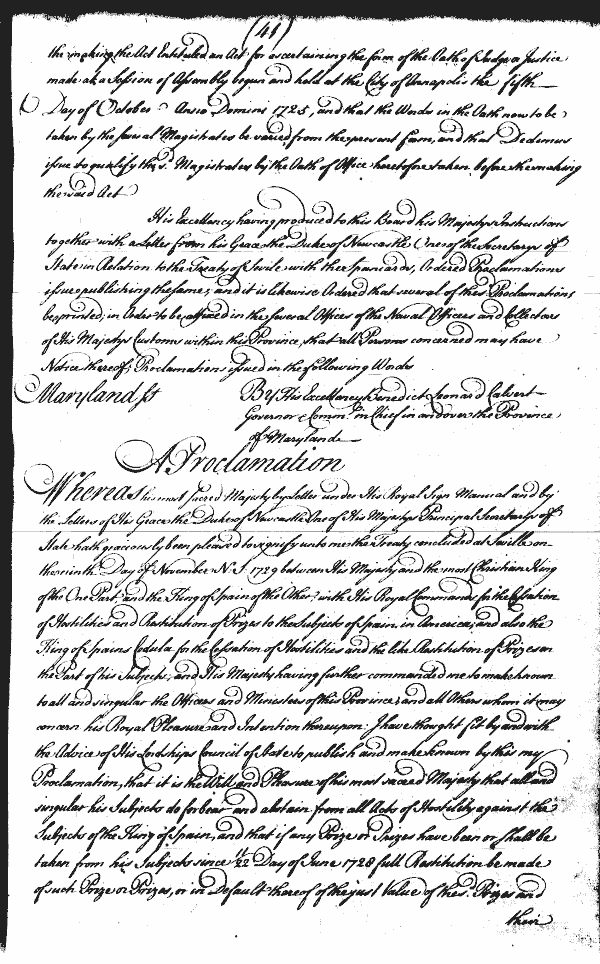 (41)
the making the Act Entituled an Act for ascertaining the form of the Oath of Judge or Justice
made at a Session of Assembly begun and held at the City of Annapolis the fifth
Day of October Anno Domini 1725, and that the Words in the Oath now to be
taken by the several Magistrates be varied from the present form, and that Dedimus
issue to qualify the sd. Magistrates by the Oath of Office heretofore taken before the making
the said Act
His Excellency having produced to this Board his Majestys Instructions
together with a Letter from his Grace the Duke of Newcastle One of the Secretarys of
State in Relation to the Treaty of Sevile with the Spaniards, Ordered Proclamations
issue publishing the same, and it is likewise Ordered that several of the sd. Proclamations
be printed, in Order to be affixed in the several Offices of the Naval Officers and Collectors
of His Majestys Customs within this Province, that all Persons concerned may have
Notice thereof; Proclamation issued in the following Words
Maryland ss
By His Excellency Benedict Leonard Calvert
Governor & Comm. in Chief in and over the Province
of Maryland
A Proclamation
Whereas his most Sacred Majesty by Letter under His Royal Sign Manual and by
the Letters of His Grace the Duke of Newcastle One of His Majestys Principal Secretarys of
State hath graciously been pleased to signify unto me the Treaty concluded at Seville on
the ninth Day of November N.S. 1729 between His Majesty and the most Christian King
of the One Part and the King of Spain of the Other; with His Royal Commands for the Cessation
of Hostilities and Restitution of Prizes to the Subjects of Spain, in America; and also the
King of Spains Cedula for the Cessation of Hostilities and the like Restitution of Prizes on
the Part of his Subjects; and His Majesty having further commanded me to make known
to all and singular the Officers and Ministers of this Province; and all Others whom it may
concern his Royal Pleasure and Intention thereupon: I have thought fit by and with
the Advice of His Lordships Council of State to publish and make known by this my
Proclamation, that it is the Will and Pleasure of his most sacred Majesty that all and
singular his Subjects do forbear and abstain from all Acts of Hostility against the
Subjects of the King of Spain, and that if any Prize or Prizes have been or shall be
taken from his Subjects since 11/22 Day of June 1728 full Restitution be made
of such Prize or Prizes, or in Default thereof of the just Value of the sd. Prizes and
their